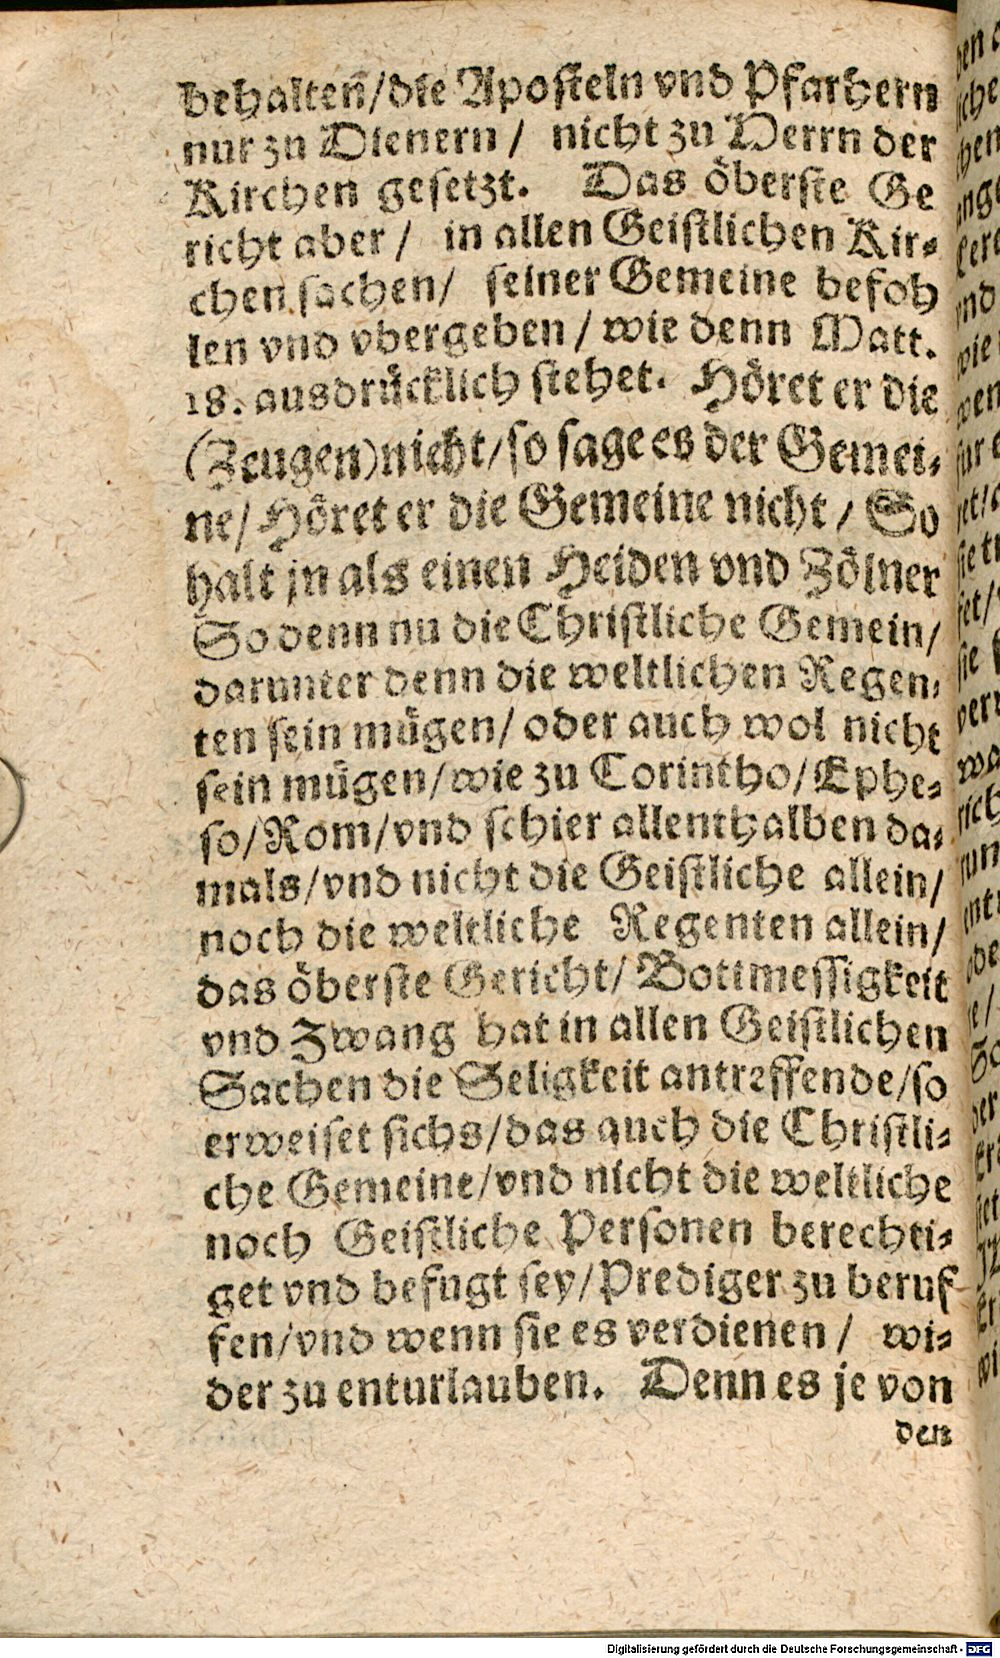 behalten/die Aposteln vnd Pfarhern
nur zu Dienern / nicht zu Herrn der
Kirchen gesetzt. Das öberste Ge
richt aber / in allen Geistlichen Kir⸗
chen sachen/ seiner Gemeine befoh
len vnd vbergeben / wie denn Matt.
18. ausdrücklich stehet. Höret er die
(Zeugen)nicht/so sage es der Gemei⸗
ne/Höret er die Gemeine nicht / So
halt jn als einen Heiden vnd Zölner
So denn nu die Christliche Gemein/
darunter denn die weltlichen Regen⸗
ten sein mügen/ oder auch wol nicht
sein mügen/wie zu Corintho/Ephe⸗
so/Rom/vnd schier allenthalben da⸗
mals/vnd nicht die Geistliche allein/
noch die weltliche Regenten allein/
das öberste Gericht/ Bottmessigkeit
vnd Zwang hat in allen Geistlichen
Sachen die Seligkeit antreffende/so
erweiset sichs/das auch die Christli⸗
che Gemeine/vnd nicht die weltliche
noch Geistliche Personen berechti⸗
get vnd befugt sey/Prediger zu beruf
fen/vnd wenn sie es verdienen / wi⸗
der zu enturlauben. Denn es je von
den
Digitalisierung gefördert durch die Deutsche Forschungsgemeinschaft - DFG